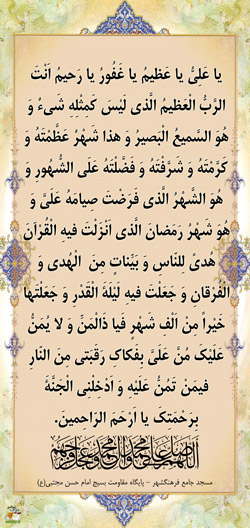 یا عَلِیُّ یا عَظیمُ یا غَفُورُ یا رَحیمُ اَنْتَ
الرَّبُّ الْعَظیمُ الَّذی لَیْسَ کَمِثْلِهِ شَیءٌ وَ
هُوَ السَّمیعُ الْبَصیرُ وَ هذا شَهْرٌ عَظَّمْتَهُ وَ
کَرَّمْتَهُ وَ شَرَّفْتَهُ وَ فَضَّلْتَهُ عَلَی الشُّهُورِ وَ
هُوَ الشَّهْرُ الَّذی فَرَضْتَ صِیامَهُ عَلَیَّ وَ
هُوَ شَهْرُ رَمَضانَ الَّذی اَنْزَلْتَ فیهِ الْقُرْآنَ
هُدیً لِلنّاسِ وَ بَیِّناتٍ مِنَ الْهُدی وَ
الْفُرْقانِ وَ جَعَلْتَ فیهِ لَیْلَةَ الْقَدْرِ وَ جَعَلْتَها
خَیْراً مِنْ اَلْفِ شَهْرٍ فَیا ذَالْمَنِّ وَ لا یُمَنُّ
عَلَیْکَ مُنَّ عَلَیَّ بِفَکاکِ رَقَبَتی مِنَ النّارِ
فیمَنْ تَمُنُّ عَلَیْهِ وَ اَدْخِلْنِی الْجَنَّةَ
بِرَحْمَتِکَ یا اَرْحَمَ الرّاحِمینَ.
اللهم صل علی محمد وال محمد وعجل فرجهم
مسجد جامع فرهنگشهر - پایگاه مقاومت بسیج امام حسن مجتبی(ع)